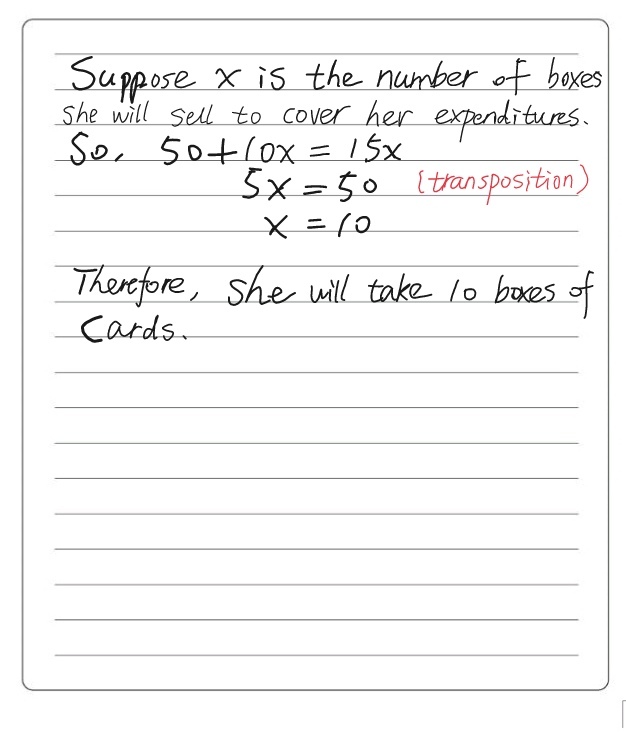 Suppose x is the number of boxes
she will sell to cover her expenditures.
So, 50+10x = 15x
5x = 50 (transposition)
x = 10
Therefore, she will take 10 boxes of
Cards.